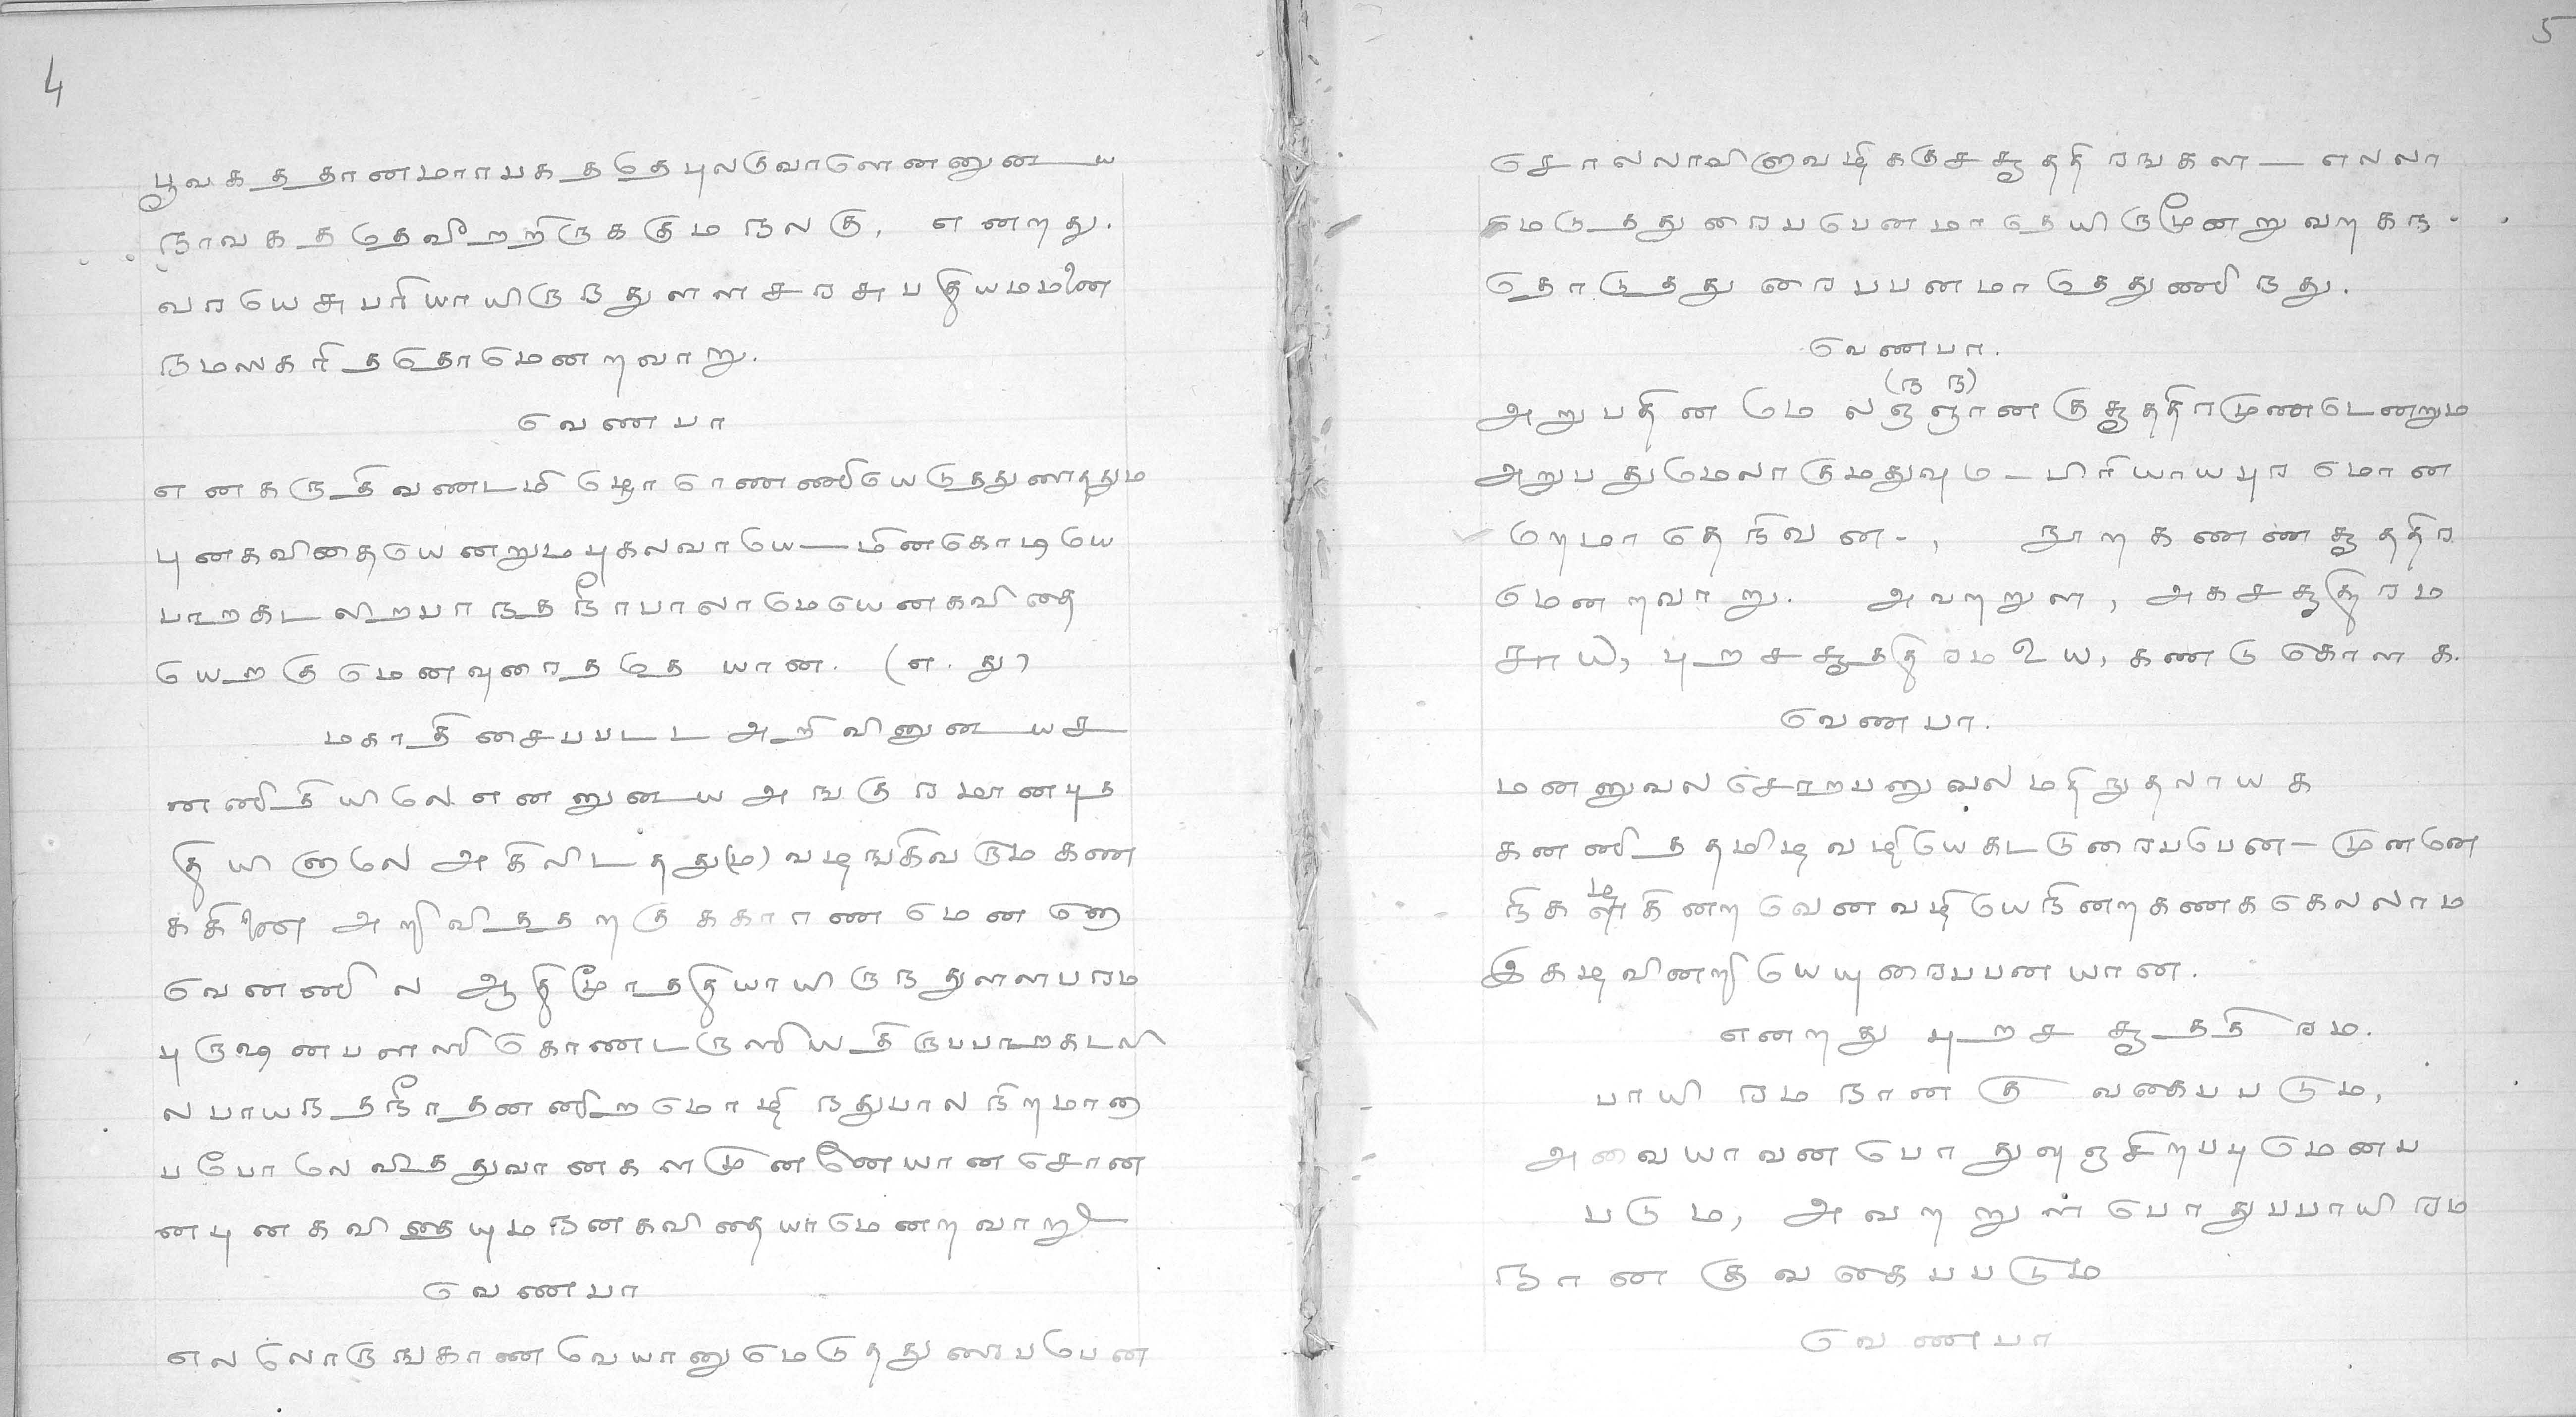 4
பூவகததானமாாயகததேபுலகுவாளெனனுடைய
நாவகததேவீறறிருககுமநலகு, எனறது.
வாயெசுபரியாயிருநதுளளசரசுபதியமமனை
நமஸகரிததோமெனறவாறு.
வெணபா
எனகருதிவணடமிழோரெண்ணியெடுததுரைததும
புனகவிதையெனறுமபுகலவாயெ—மினகொடியெ
பாறகடலிறபாநதநீர்பாலாமெயெனகவிதை
யெறகுமெனவுரைததே யான. (எ. து)
மகாதிசைபபடட அறிவினுடையச
னனிதியிலே எனனுடைய அஙகுரமானபுத
தியினாலே அகிலிடதது(ம) வழஙகிவருமகண
ககினை அறிவிததறகுககாரணமெனனே
வெனனில ஆதிமூாததியாயிருநதுளளபரம
புருஷனபளளிகொணடருளியதிருபபாறகடலி
லபாயநதநீாதனனிறமொழிநதுபாலநிறமான
பபோலெவிததுவானகளமுனனேயானசொன
னபுனகவிதையுமநனகவிதையாமெனறவாறு
வெணபா
எலலொருஙகாணவெயானுமெடுததுரைபபென
5
சொலலாவினாவழிககுசசூததிரஙகள—எலலா
மெடுததுரைபபெனமாதெயிருமூனறுவறகந
தொடுததுரைபபனமாதெதுணிநது.
வெணபா.
(ந ந)
அறுபதினமேலஞஞானகுசூததிரமுணடெனறும
அறுபதுமேலாகுமதுவும—பிரியாயபுரமோன
மெறமாதெநிவன-, நூறகணணசூததிர
மெனறவாறு. அவறறுள, அகசசூதிரம
சாய), புறசசூததிரம உய, கணடுகொளக.
வெணபா.
மனனுவலசொறபனுவலமதிநுதலாயக
கனனிததமிழவழியெகடடுரைபபென—முனனே
நிகழ்கினறவெனவழியெநினறகணககெலலாம
இகழவினறியெயுரைபபனயான.
எனறது புறசசூததிரம.
பாயிரமநானகு வகைபபடும,
அவையாவனபொதுவுஞசிறபபுமெனப
படும, அவறறுள்பொதுபபாயிரம
நானகுவகைபபடும
வெணபா